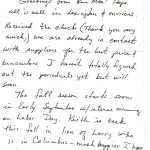 Greetings from Ken Mar! Hope
all is well in Lexington & environs.
Received the check (Thank you very
much) we are already in contact
with suppliers for the best price
. I haven't totally figured
out the periodicals yet but will
soon.
The fall season starts soon
in Early September w/ interns arriving
on Labor Day. Keith is back
this fall in lieu of Larry who
is in Columbia - much happier I hope